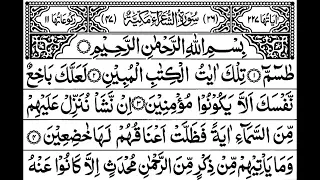 اٰیاتها ٢٢٧ (٢٦) سُوْرَةُ الشُّعَرَآءِ مَكِّيَّةٌ (٤٧) رُكُوْعَاتُهَا ١١
بِسْمِ اللّٰهِ الرَّحْمٰنِ الرَّحِيْمِ
طٰسٓمّٓ ۝١ تِلْكَ اٰيٰتُ الْكِتٰبِ الْمُبِيْنِ ۝٢ لَعَلَّكَ بَاخِعٌ
نَّفْسَكَ اَلَّا يَكُوْنُوْا مُؤْمِنِيْنَ ۝٣ اِنْ نَّشَاْ نُنَزِّلْ عَلَيْهِمْ
مِّنَ السَّمَآءِ اٰيَةً فَظَلَّتْ اَعْنَاقُهُمْ لَهَا خٰضِعِيْنَ ۝٤
وَمَا يَاْتِيْهِمْ مِّنْ ذِكْرٍ مِّنَ الرَّحْمٰنِ مُحْدَثٍ اِلَّا كَانُوْا عَنْهُ